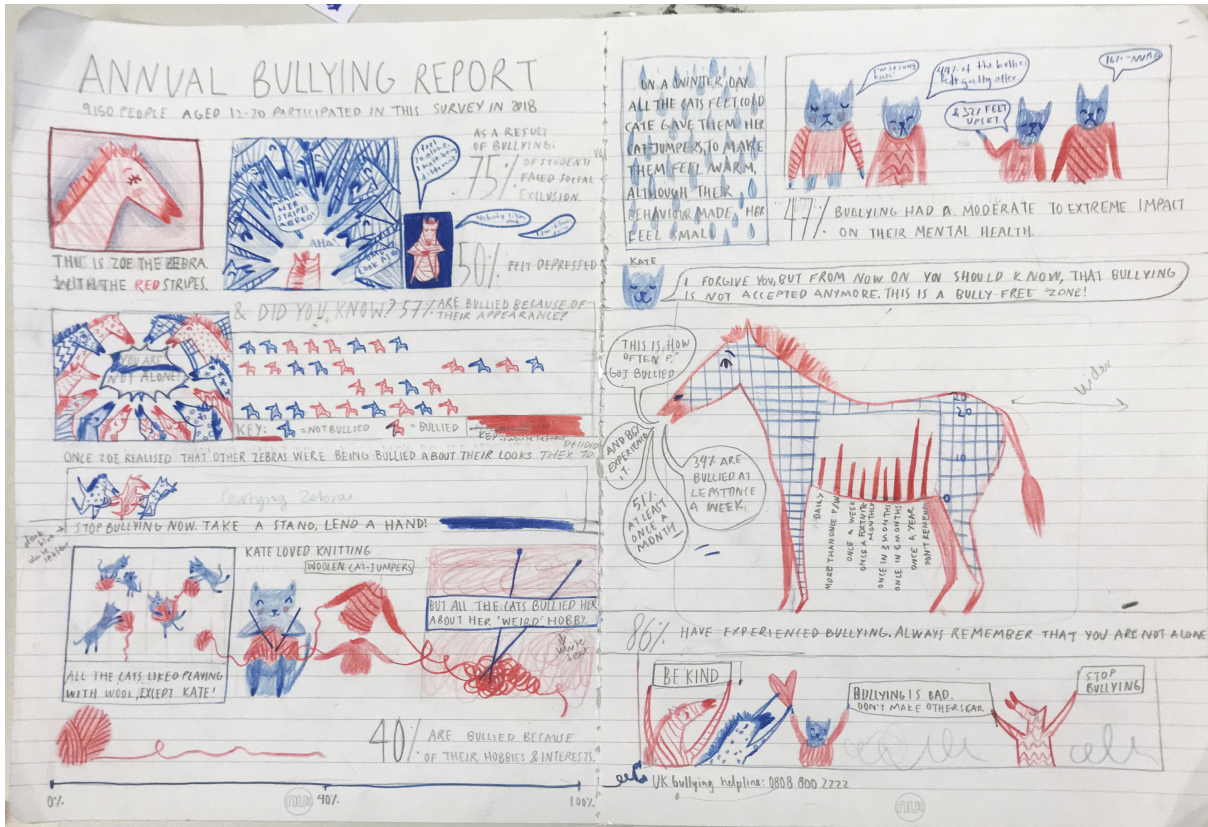 ANNUAL BULLYING REPORT
9150 PEOPLE AGED 12-20 PARTICIPATED IN THIS SURVEY IN 2018
THIS IS ZOE THE ZEBRA
WITH THE RED STRIPES.
HER
STRIPES
ARE RED!
AHA
OMG
LOOK AT
I feel
so alone.
I hate being
different
Nobody likes
me
AS A RESULT
OF BULLYING:
75% OF STUDENTS
FACED SOCIAL
EXCLUSION.
50% FELT DEPRESSED
& DID YOU KNOW? 57% ARE BULLIED BECAUSE OF
THEIR APPEARANCE?
YOU ARE
NOT ALONE!
KEY: = NOT BULLIED = BULLIED
KEY = white text
ONCE ZOE REALISED THAT OTHER ZEBRAS WERE BEING BULLIED ABOUT THEIR LOOKS THEY DECIDED TO:
Zebras
STOP BULLYING NOW. TAKE A STAND, LEND A HAND!
blue
white
KATE LOVED KNITTING
WOOLEN CAT-JUMPERS
BUT ALL THE CATS BULLIED HER
ABOUT HER 'WEIRD' HOBBY.
white
text
ALL THE CATS LIKED PLAYING
WITH WOOL, EXCEPT KATE!
40% ARE BULLIED BECAUSE
OF THEIR HOBBIES & INTERESTS.
0% 40% 100%
nu
ON A WINTER DAY
ALL THE CATS FELT COLD
CATE GAVE THEM HER
CAT-JUMPERS TO MAKE
THEM FEEL WARM,
ALTHOUGH THEIR
BEHAVIOUR MADE HER
FEEL SMALL
I'm sorry
Kate!
49% of the bullies
felt guilty after
& 32% FEEL
UPSET.
16%
47% BULLYING HAD A MODERATE TO EXTREME IMPACT
ON THEIR MENTAL HEALTH.
KATE
I FORGIVE YOU, BUT FROM NOW ON YOU SHOULD KNOW, THAT BULLYING
IS NOT ACCEPTED ANYMORE. THIS IS A BULLY-FREE ZONE!
THIS IS, HOW
OFTEN P.
GOT BULLIED
AND 86%
EXPERIENCE
IT.
34% ARE
BULLIED AT
LEAST ONCE
A WEEK.
51%
AT LEAST
ONCE A
MONTH
wider
20
20
10
0
DAILY
MORE THAN ONCE P/W
ONCE A WEEK
ONCE A FORTNITE
MONTHLY
ONCE IN 3 MONTHS
ONCE IN 6 MONTHS
ONCE A YEAR
DON'T REMEMBER
86% HAVE EXPERIENCED BULLYING. ALWAYS REMEMBER THAT YOU ARE NOT ALONE
BE KIND
BULLYING IS BAD.
DON'T MAKE OTHERS CAR
STOP
BULLYING
UK bullying helpline: 0808 800 2222
nu